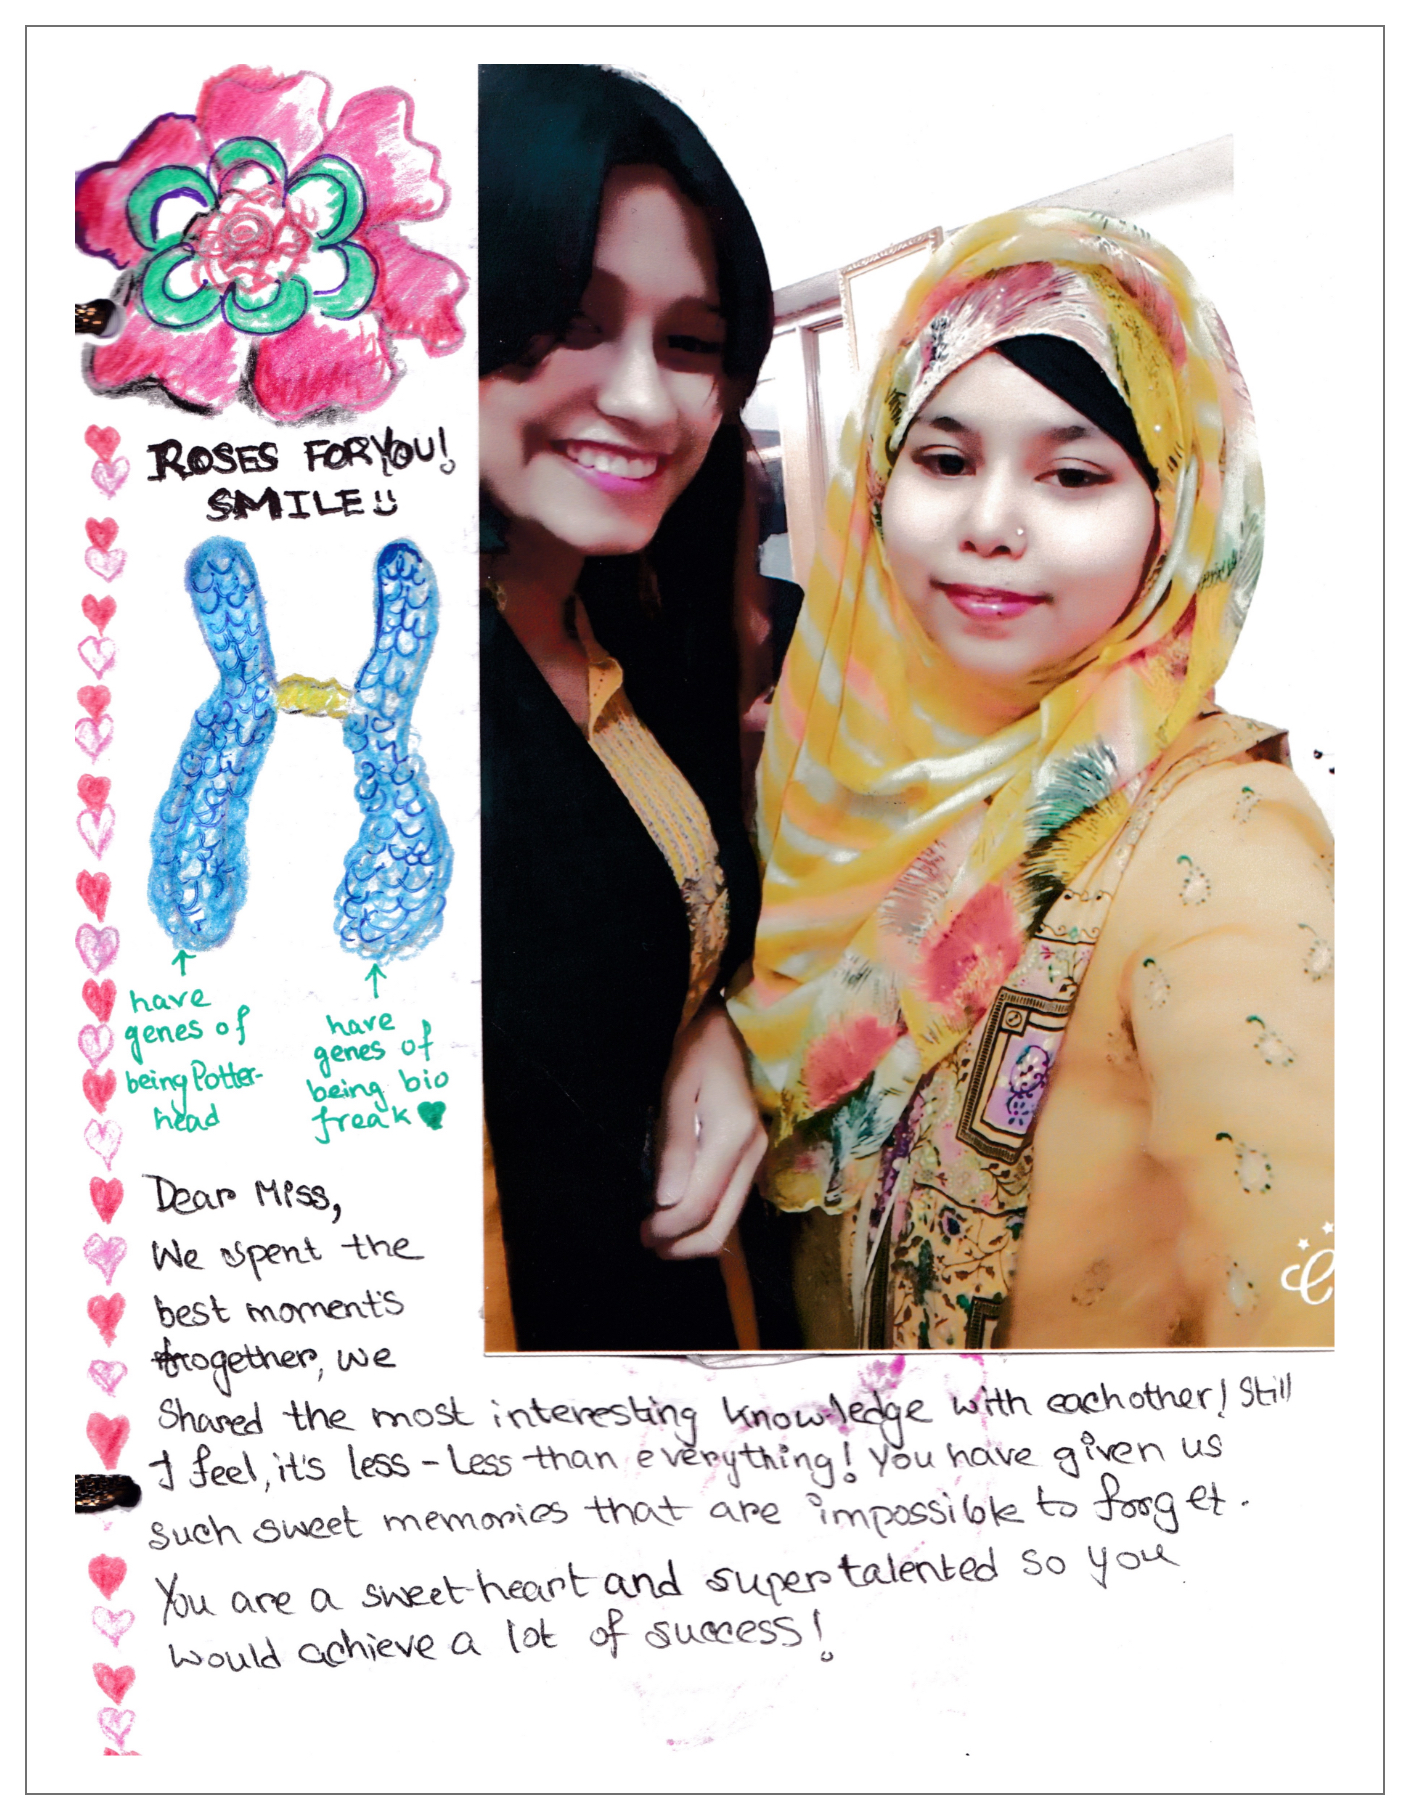 ROSES FOR YOU!
SMILE
have
genes of
being Potter-
head
have
genes of
being bio
freak
Dear Miss,
We spent the
best moments
together, we
Shared the most interesting knowledge with eachother! Still
I feel, it's less - Less than everything! You have given us
such sweet memories that are impossible to forget.
You are a sweet-heart and super talented so you
would achieve a lot of success!